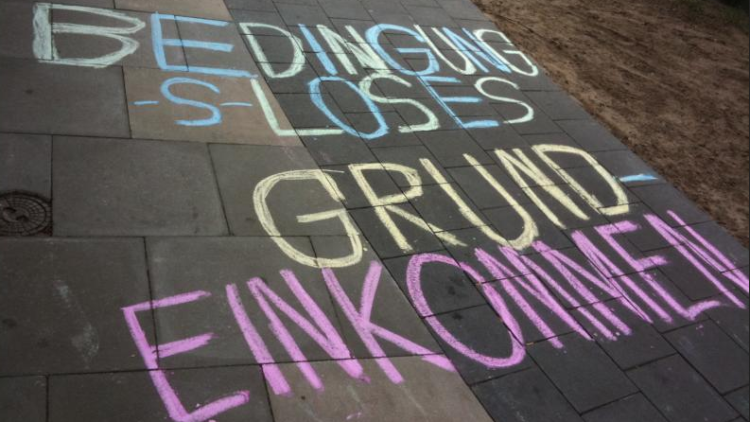 BEDINGUNG
-S-LOSES
GRUND-
EINKOMMEN